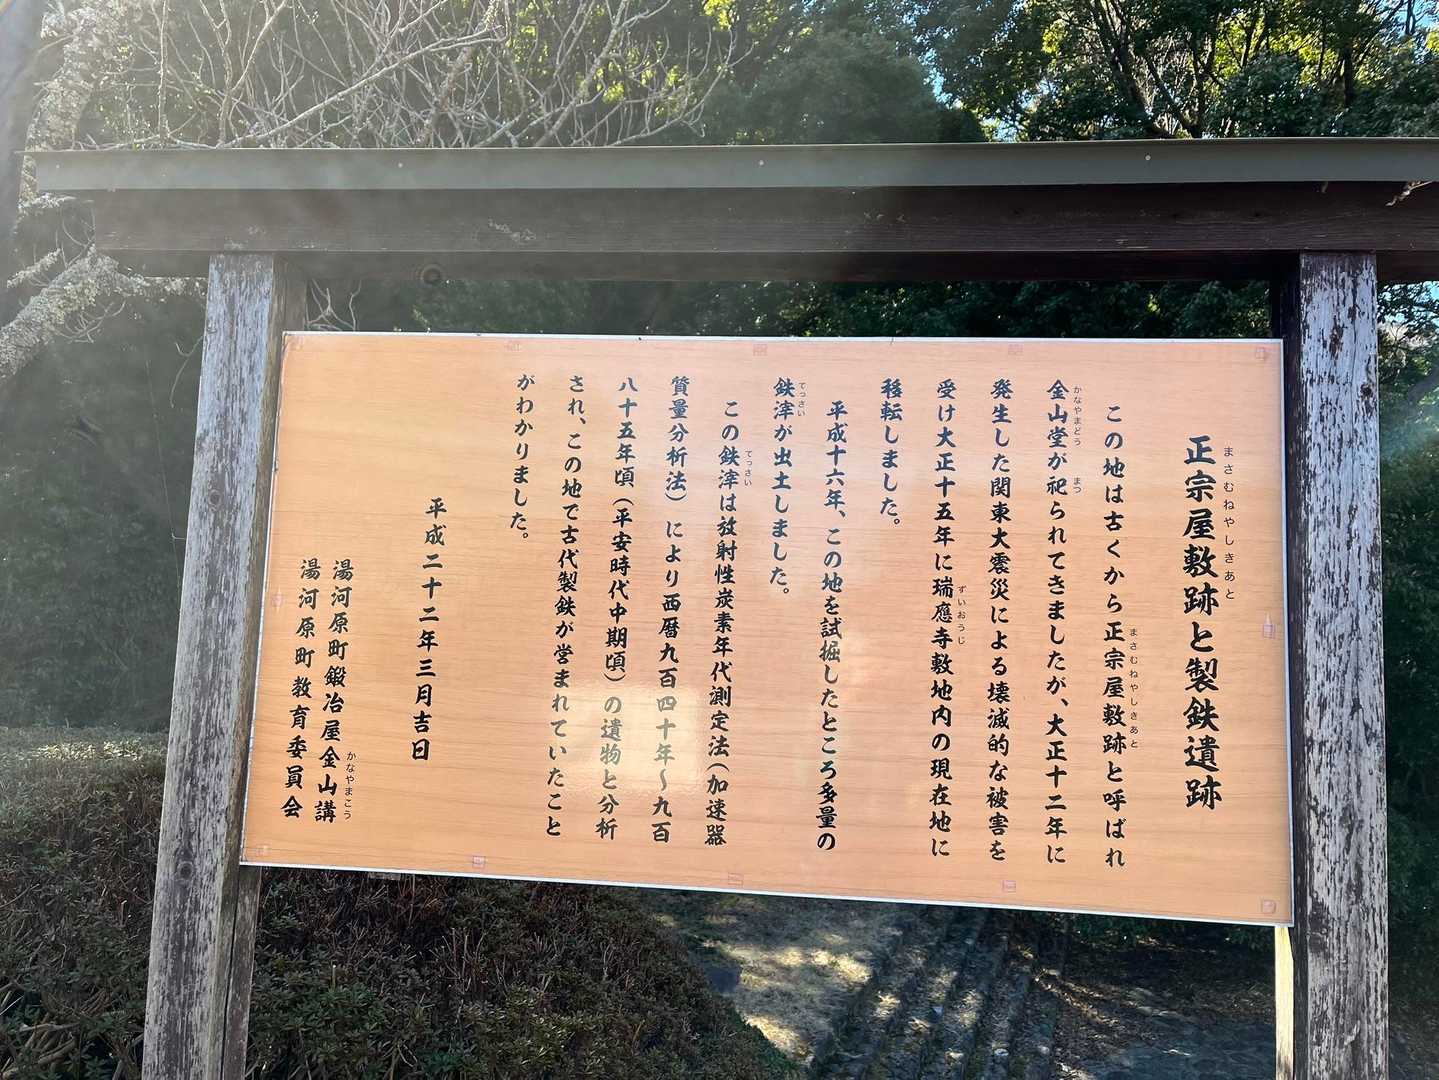 正宗屋敷跡と製鉄遺跡
まさむねやしきあと
この地は古くから正宗屋敷跡と呼ばれ
まさむねやしきあと
金山堂が祀られてきましたが、大正十二年に
かなやまどう
まつ
発生した関東大震災による壊滅的な被害を
受け大正十五年に瑞應寺敷地内の現在地に
ずいおうじ
移転しました。
平成十六年、この地を試掘したところ多量の
鉄滓が出土しました。
てっさい
この鉄滓は放射性炭素年代測定法（加速器
てっさい
質量分析法）により西暦九百四十年～九百
八十五年頃（平安時代中期頃）の遺物と分析
され、この地で古代製鉄が営まれていたこと
がわかりました。
平成二十二年三月吉日
湯河原町鍛冶屋金山講
かなやまこう
湯河原町教育委員会